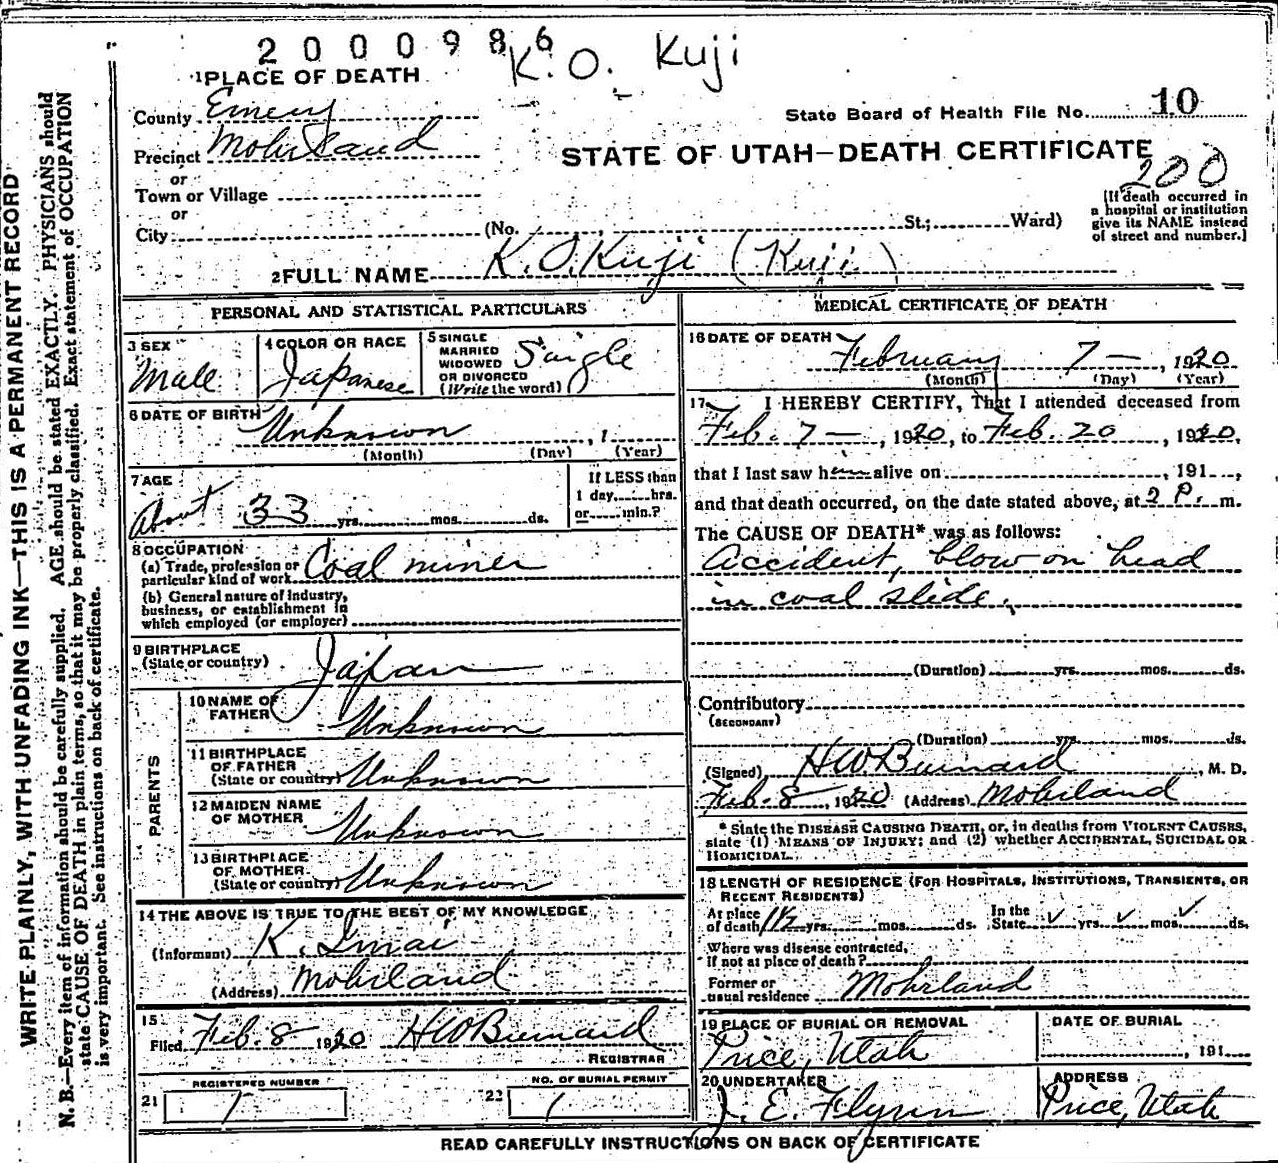 2000986
K.O. Kuji
1 PLACE OF DEATH
State Board of Health File No. 10
County Emery
Precinct Mohrland
STATE OF UTAH—DEATH CERTIFICATE
200
or
Town or Village
or
City (No. St.; Ward)
[If death occurred in
a hospital or institution
give its NAME instead
of street and number.]
2 FULL NAME K. O. Kuji (Kuji)
PERSONAL AND STATISTICAL PARTICULARS
3 SEX
Male
4 COLOR OR RACE
Japanese
5 SINGLE
MARRIED
WIDOWED
OR DIVORCED
(Write the word)
Single
6 DATE OF BIRTH
Unknown , 1
(Month) (Day) (Year)
7 AGE
About 33 yrs. mos. ds.
If LESS than
1 day, hrs.
or min.?
8 OCCUPATION
(a) Trade, profession or
particular kind of work Coal miner
(b) General nature of industry,
business, or establishment in
which employed (or employer)
9 BIRTHPLACE
(State or country) Japan
PARENTS
10 NAME OF
FATHER Unknown
11 BIRTHPLACE
OF FATHER
(State or country) Unknown
12 MAIDEN NAME
OF MOTHER Unknown
13 BIRTHPLACE
OF MOTHER
(State or country) Unknown
14 THE ABOVE IS TRUE TO THE BEST OF MY KNOWLEDGE
(Informant) K. Imai
(Address) Mohrland
15
Filed Feb. 8 1920 HW Burnard
REGISTRAR
REGISTERED NUMBER
21 1
NO. OF BURIAL PERMIT
22 1
MEDICAL CERTIFICATE OF DEATH
16 DATE OF DEATH
February 7 — , 1920
(Month) (Day) (Year)
17 I HEREBY CERTIFY, That I attended deceased from
Feb. 7 — , 1920, to Feb. 20 , 1920,
that I last saw him alive on , 191 ,
and that death occurred, on the date stated above, at 2 P. m.
The CAUSE OF DEATH* was as follows:
Accident, blow on head
in coal slide.
(Duration) yrs. mos. ds.
Contributory
(SECONDARY)
(Duration) yrs. mos. ds.
(Signed) HW Burnard , M. D.
Feb. 8 , 1920 (Address) Mohrland
* State the DISEASE CAUSING DEATH, or, in deaths from VIOLENT CAUSES,
state (1) MEANS OF INJURY; and (2) whether ACCIDENTAL, SUICIDAL OR
HOMICIDAL.
18 LENGTH OF RESIDENCE (FOR HOSPITALS, INSTITUTIONS, TRANSIENTS, OR
RECENT RESIDENTS)
At place
of death 1½ yrs. mos. ds.
In the
State ✓ yrs. ✓ mos. ✓ ds.
Where was disease contracted,
if not at place of death?
Former or
usual residence Mohrland
19 PLACE OF BURIAL OR REMOVAL
Price, Utah
DATE OF BURIAL
, 191
20 UNDERTAKER
J. E. Flynn
ADDRESS
Price, Utah
READ CAREFULLY INSTRUCTIONS ON BACK OF CERTIFICATE
WRITE PLAINLY, WITH UNFADING INK—THIS IS A PERMANENT RECORD
N. B.—Every item of information should be carefully supplied. AGE should be stated EXACTLY. PHYSICIANS should
state CAUSE OF DEATH in plain terms, so that it may be properly classified. Exact statement of OCCUPATION
is very important. See instructions on back of certificate.